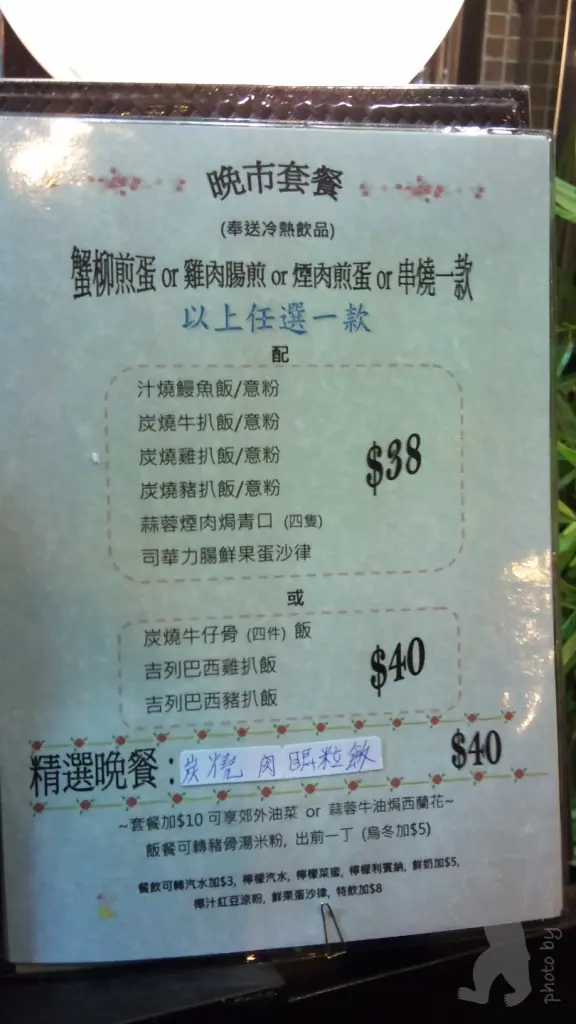 晚市套餐
(奉送冷熱飲品)
蟹柳煎蛋 or 雞肉腸煎 or 煙肉煎蛋 or 串燒一款
以上任選一款
配
汁燒鰻魚飯/意粉
炭燒牛扒飯/意粉
炭燒雞扒飯/意粉
炭燒豬扒飯/意粉
蒜蓉煙肉焗青口 (四隻)
司華力腸鮮果蛋沙律
$38
或
炭燒牛仔骨 (四件) 飯
吉列巴西雞扒飯
吉列巴西豬扒飯
$40
精選晚餐：炭燒肉眼粒飯 $40
~套餐加$10 可享郊外油菜 or 蒜蓉牛油焗西蘭花~
飯餐可轉豬骨湯米粉, 出前一丁 (烏冬加$5)
餐飲可轉汽水加$3, 檸檬汽水, 檸檬菜蜜, 檸檬利賓納, 鮮奶加$5,
椰汁紅豆涼粉, 鮮果蛋沙律, 特飲加$8
photo by